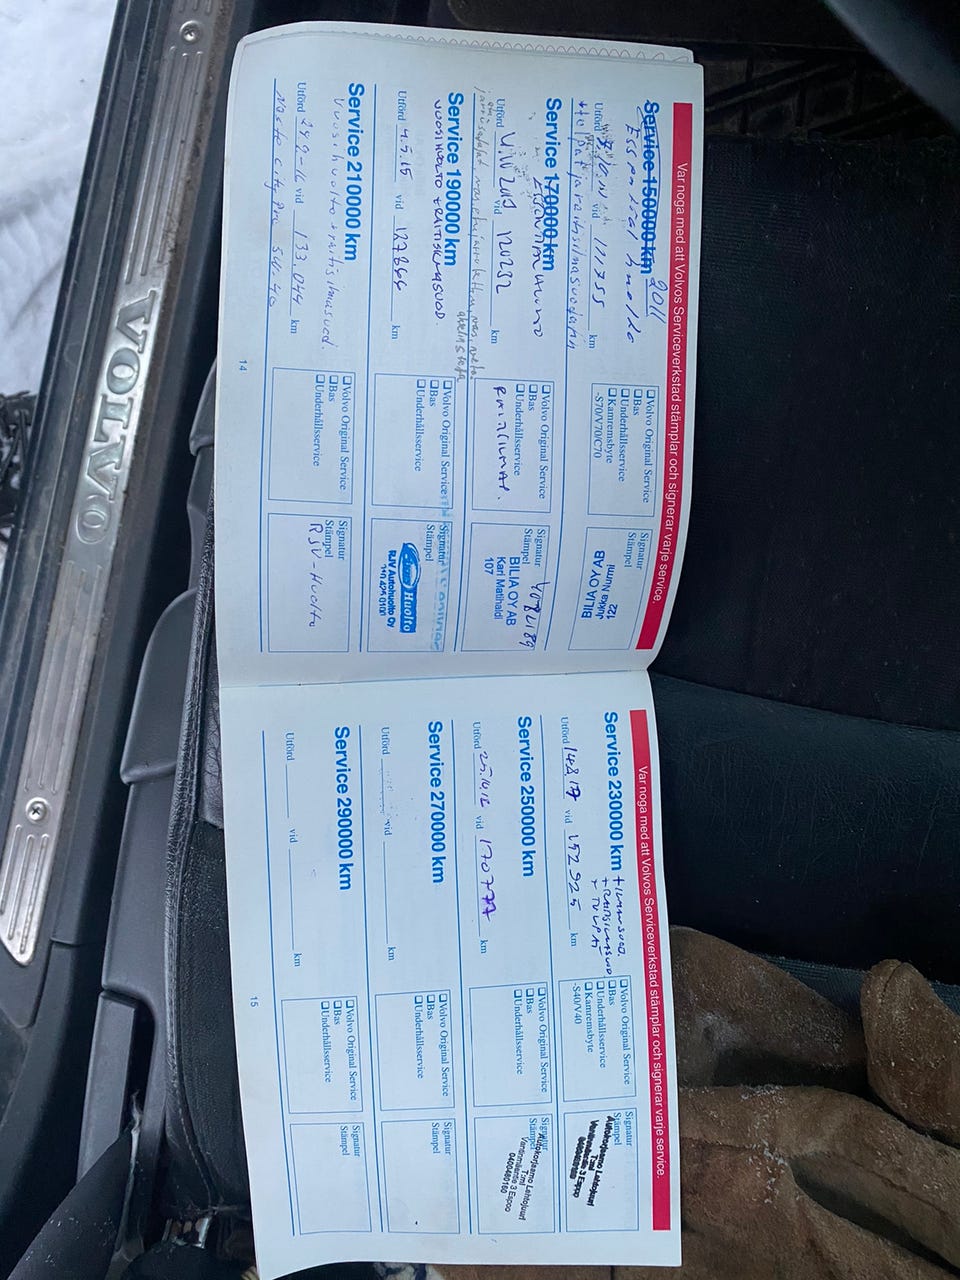 Var noga med att Volvos Serviceverkstad stämplar och signerar varje service.
Service 150000 km 2011
Essential huolto
Utförd vid 111355 km
+tulpat ja raitisilmasuodatin
Volvo Original Service
Bas
Underhållsservice
Kamremsbyte
-S70/V70/C70
Signatur
Stämpel
122
Jukka Nurmi
BILIA OY AB
Service 170000 km
ESSENTIAL HUOLTO
Utförd vid 120252 km
Volvo Original Service
Bas
Underhållsservice
Signatur
Stämpel
BILIA OY AB
Kari Matihaldi
107
Service 190000 km
VUOSIHUOLTO + RAITISILMASUOD.
Utförd 4.5.15 vid 127866 km
Volvo Original Service
Bas
Underhållsservice
Signatur
Stämpel
Huolto
RJV Autohuolto Oy
010 425 0100
Service 210000 km
Vuosihuolto + raitisilmasuod.
Utförd 24.2-16 vid 133.044 km
Volvo Original Service
Bas
Underhållsservice
Signatur
Stämpel
RJV-Huolto
14
Var noga med att Volvos Serviceverkstad stämplar och signerar varje service.
Service 230000 km + ILMANSUOD.
+ RAITISILMASUOD
+ TULPAT
Utförd 14.8.17 vid 152925 km
Volvo Original Service
Bas
Underhållsservice
Kamremsbyte
-S40/V40
Signatur
Stämpel
Autokorjaamo Lehtojuuri
T:mi
Vanttinmäentie 3 Espoo
0400480160
Service 250000 km
Utförd vid 170777 km
Volvo Original Service
Bas
Underhållsservice
Signatur
Stämpel
Autokorjaamo Lehtojuuri
T:mi
Vanttinmäentie 3 Espoo
0400480160
Service 270000 km
Utförd vid km
Volvo Original Service
Bas
Underhållsservice
Signatur
Stämpel
Service 290000 km
Utförd vid km
Volvo Original Service
Bas
Underhållsservice
Signatur
Stämpel
15
VOLVO